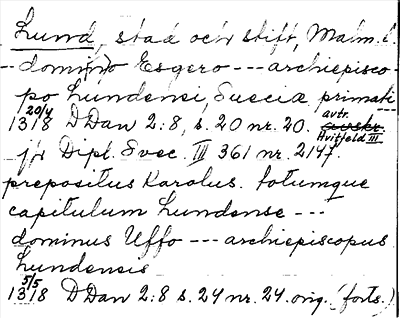 Lund, stad och stift, Malm. l.
-- domino Esgero --- archiepisco-
po Lundensi, Suecie primati -
20/4 avtr.
1318 D Dan 2:8, s. 20 nr. 20. Hvitfeld III
jfr Dipl. Svec. III 361 nr. 2147.
prepositus Karolus. totumque
capitulum Lundense ---
dominus Uffo --- archiepiscopus
Lundensis
5/5
1318 D Dan 2:8 s. 24 nr. 24. orig. (forts.)